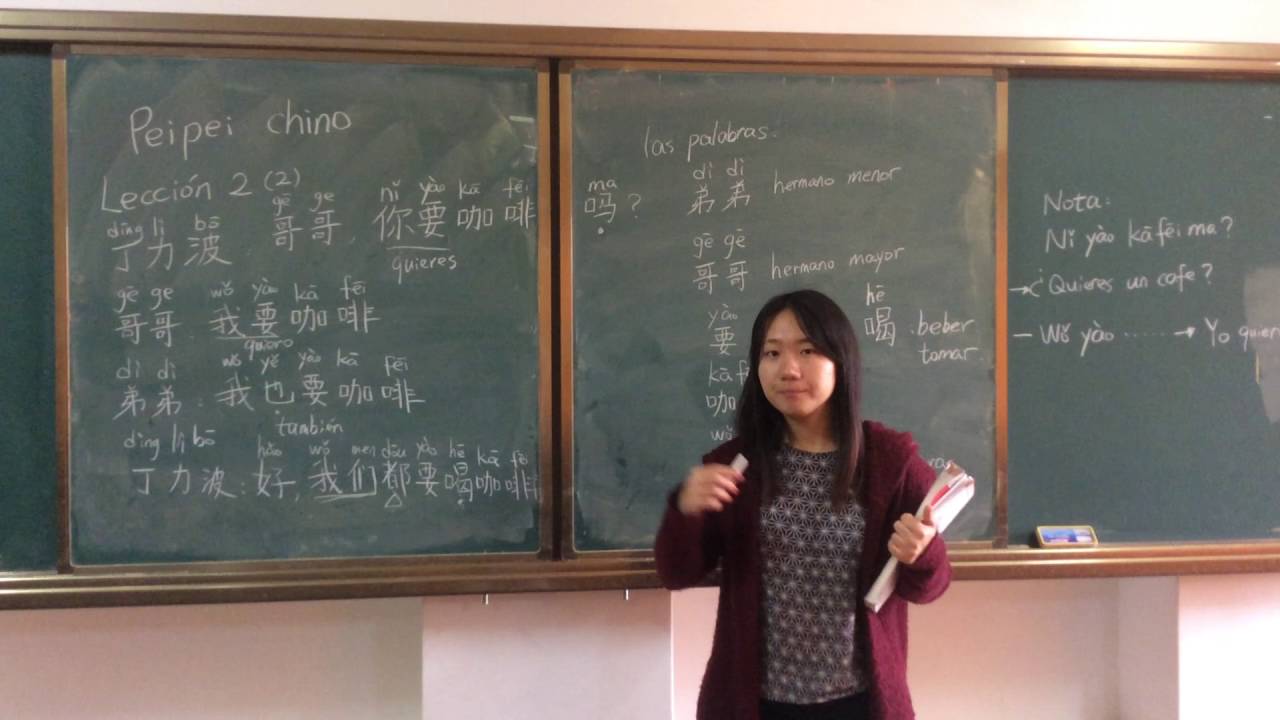 Peipei chino
Lección 2 (2)
gē ge nǐ yào kā fēi ma
dīng lì bō
丁力波：哥哥，你要咖啡吗？
quieres
gē ge wǒ yào kā fēi
哥哥：我要咖啡
quiero
dì di wǒ yě yào kā fēi
弟弟：我也要咖啡
también
dīng lì bō hǎo wǒ men dōu yào hē kā fēi
丁力波：好，我们都要喝咖啡
las palabras:
dì dì
弟弟 hermano menor
gē gē
哥哥 hermano mayor
yào
要
kā
咖
wǒ
hē
喝 .beber
tomar
Nota:
Nǐ yào kāfēi ma?
→¿Quieres un cafe?
— Wǒ yào ······→ Yo quier